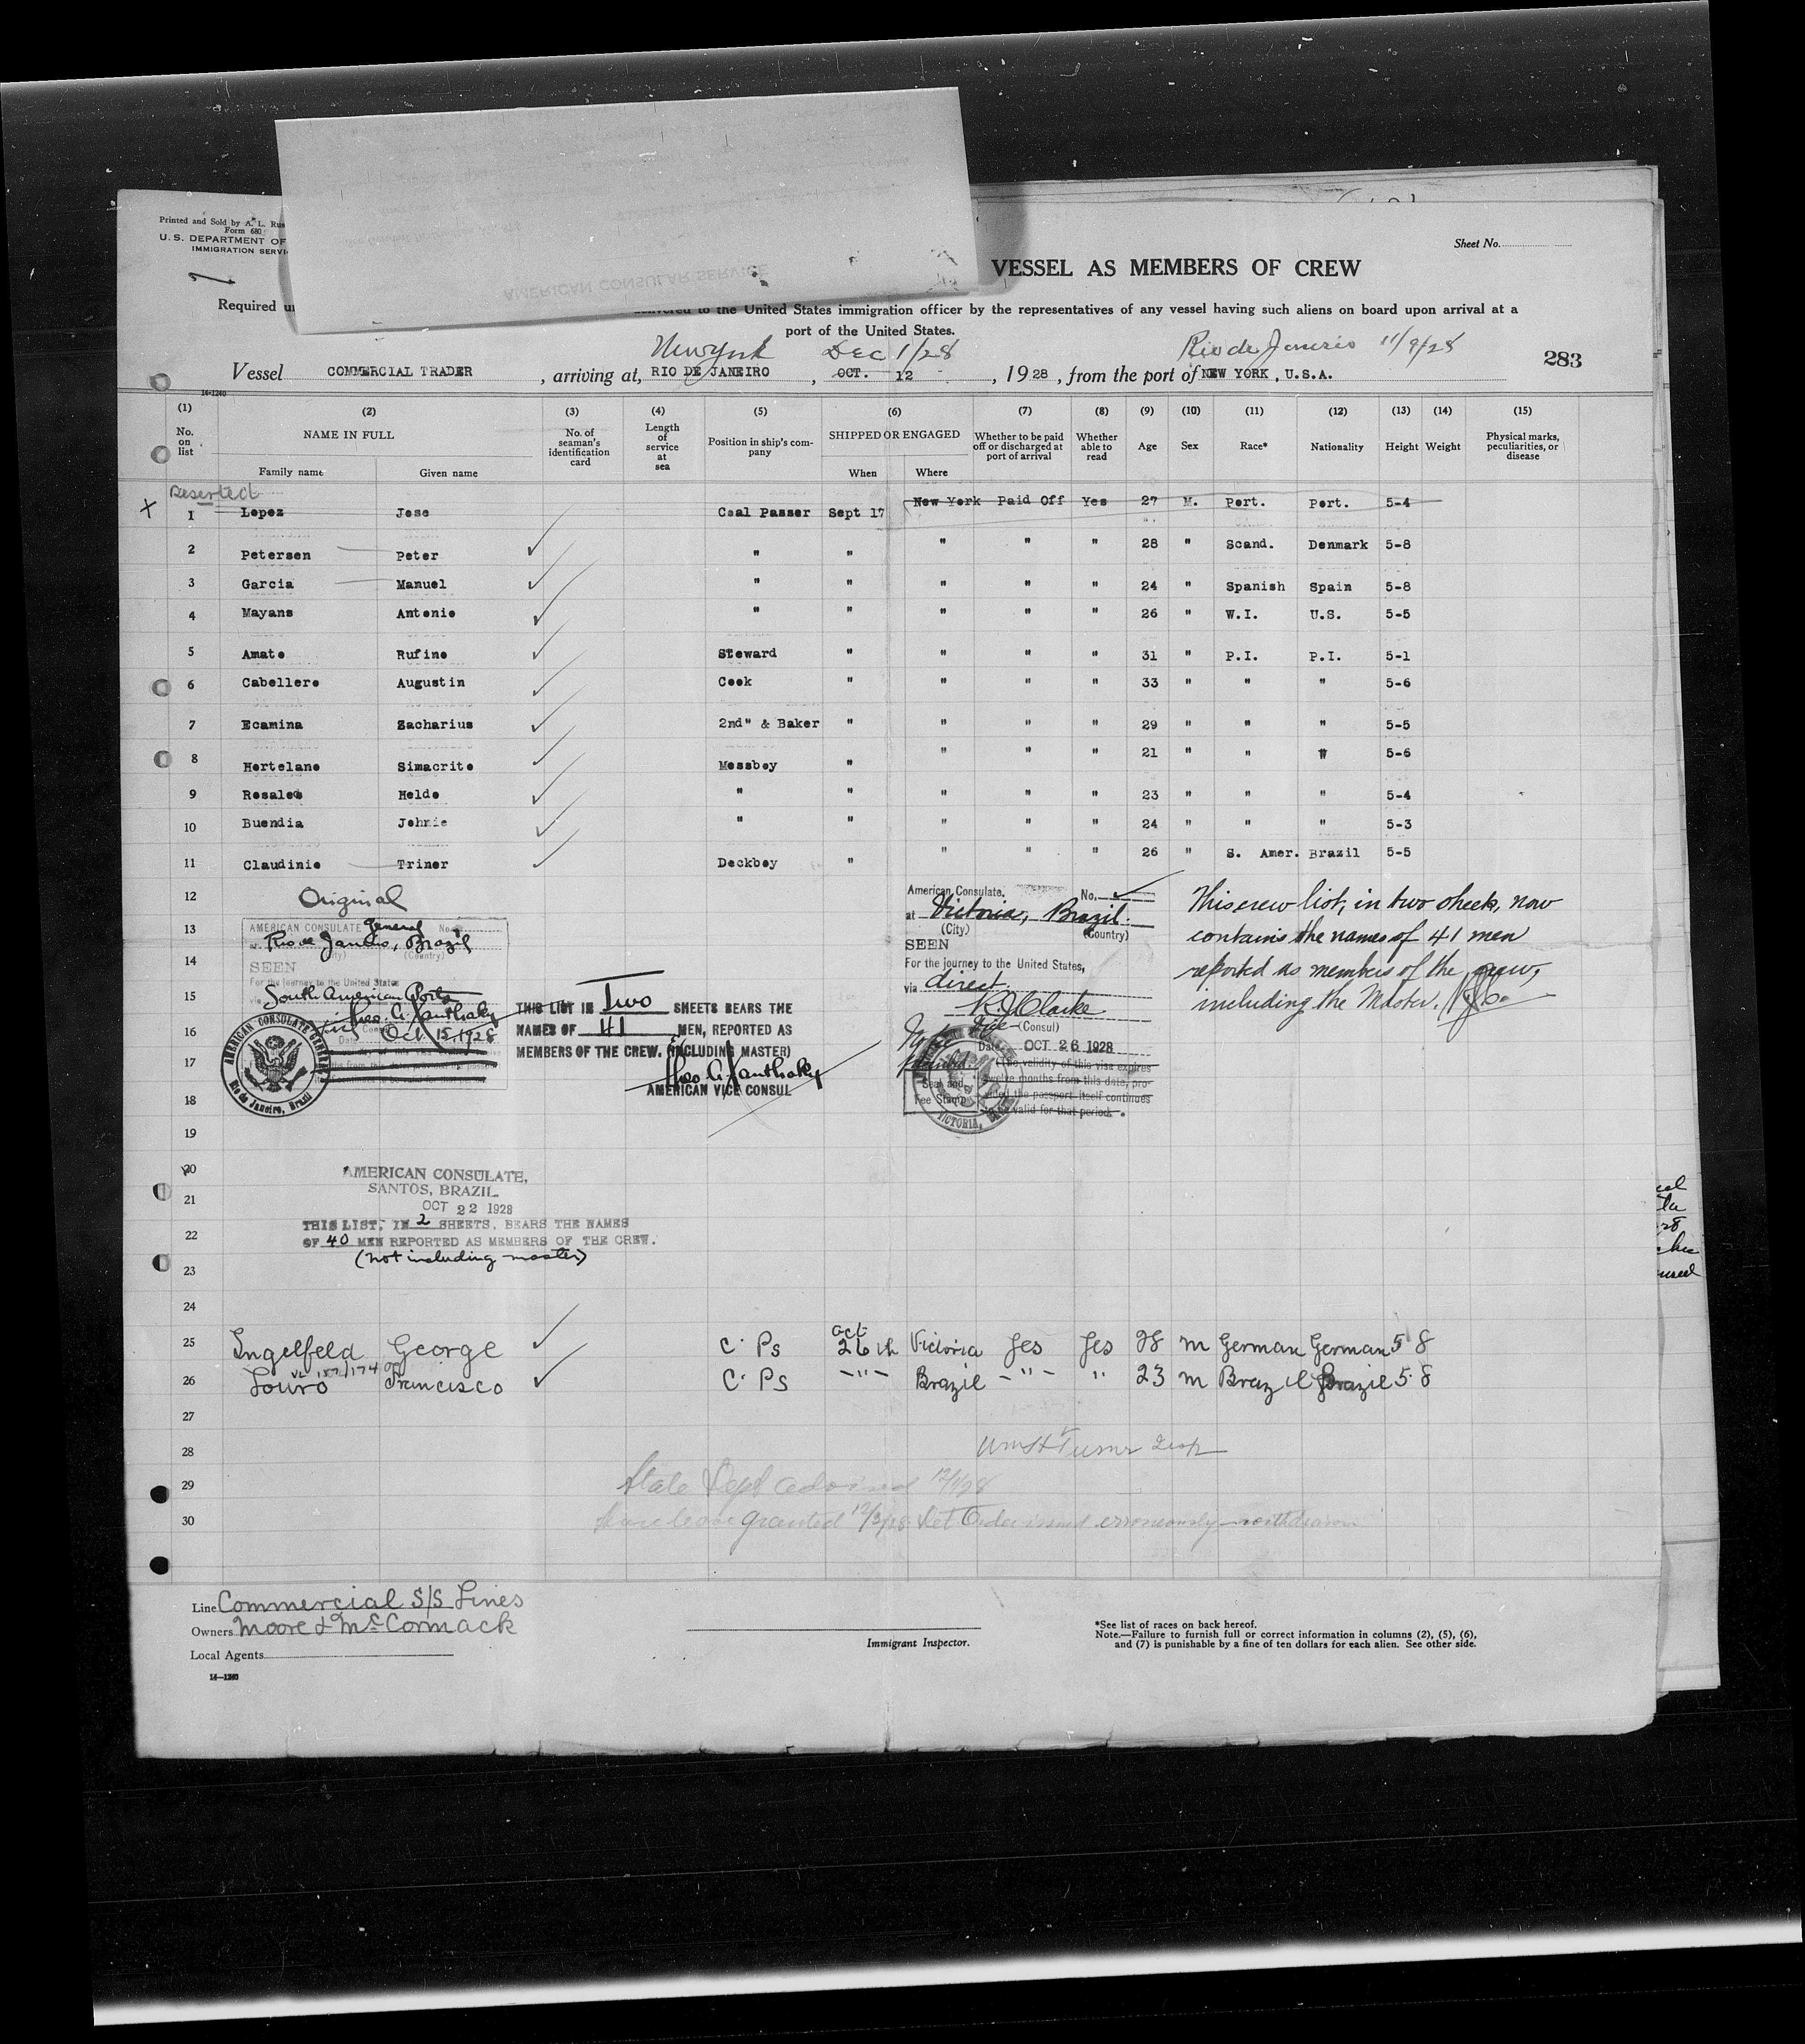 Printed and Sold by A. L. Rus
Form 680
U. S. DEPARTMENT OF
IMMIGRATION SERVI
AMERICAN CONSULAR SERVICE
Sheet No.
VESSEL AS MEMBERS OF CREW
Required un
delivered to the United States immigration officer by the representatives of any vessel having such aliens on board upon arrival at a
port of the United States.
New York Dec 1/28 Rio de Janeiro 11/9/28
Vessel COMMERCIAL TRADER, arriving at, RIO DE JANEIRO, OCT. 12, 1928, from the port of NEW YORK, U.S.A. 283
14-1240
(1) (2) (3) (4) (5) (6) (7) (8) (9) (10) (11) (12) (13) (14) (15)
No. on list NAME IN FULL No. of seaman's identification card Length of service at sea Position in ship's company SHIPPED OR ENGAGED Whether to be paid off or discharged at port of arrival Whether able to read Age Sex Race* Nationality Height Weight Physical marks, peculiarities, or disease
Family name Given name When Where
Deserted
X 1 Lopez Jose Coal Passer Sept 17 New York Paid Off Yes 27 M. Port. Port. 5-4
2 Petersen Peter " " " " " 28 " Scand. Denmark 5-8
3 Garcia Manuel " " " " " 24 " Spanish Spain 5-8
4 Mayans Antonio " " " " " 26 " W.I. U.S. 5-5
5 Amato Rufino Steward " " " " 31 " P.I. P.I. 5-1
6 Cabellero Augustin Cook " " " " 33 " " " 5-6
7 Ecamina Zacharius 2nd" & Baker " " " " 29 " " " 5-5
8 Hortelano Simacrito Messboy " " " " 21 " " " 5-6
9 Rosales Heldo " " " " " 23 " " " 5-4
10 Buendia Johnie " " " " " 24 " " " 5-3
11 Claudinio Triner Deckboy " " " " 26 " S. Amer. Brazil 5-5
12 Original
13
14
15
16
17
18
19
20
21
22
23
24
AMERICAN CONSULATE General No.
at Rio de Janeiro, Brazil
(City) (Country)
SEEN
For the journey to the United States
via South American Ports
Theo. C. Xanthaky
Oct. 15, 1928
AMERICAN CONSULATE GENERAL
Rio de Janeiro, Brazil
THIS LIST IN Two SHEETS BEARS THE
NAMES OF 41 MEN, REPORTED AS
MEMBERS OF THE CREW. (INCLUDING MASTER)
Theo C. Xanthaky
AMERICAN VICE CONSUL
American Consulate, No.
at Victoria, Brazil.
(City) (Country)
SEEN
For the journey to the United States,
via direct.
R. J. Clarke
Vice (Consul)
Date OCT 26 1928
The validity of this visa expires
twelve months from this date, pro-
vided the passport itself continues
to be valid for that period.
Seal and
Fee Stamp
VICTORIA,
This crew list, in two sheets, now
contains the names of 41 men
reported as members of the crew,
including the Master.
AMERICAN CONSULATE,
SANTOS, BRAZIL.
OCT 22 1928
THIS LIST, IN 2 SHEETS, BEARS THE NAMES
OF 40 MEN REPORTED AS MEMBERS OF THE CREW.
(not including master)
25 Ingelfeld George C. Ps Oct 26th Victoria Yes Yes 28 M German German 5 8
26 Louro Francisco C. Ps " Brazil " " 23 M Brazil Brazil 5 8
27
28 Wm H Turner
29 State Dept advised 12/1/28
30 granted 12/3/28 Det Order issued erroneously withdrawn
Line Commercial S/S Lines
Owners Moore & McCormack
Local Agents
14-1240
Immigrant Inspector.
*See list of races on back hereof.
Note.—Failure to furnish full or correct information in columns (2), (5), (6),
and (7) is punishable by a fine of ten dollars for each alien. See other side.